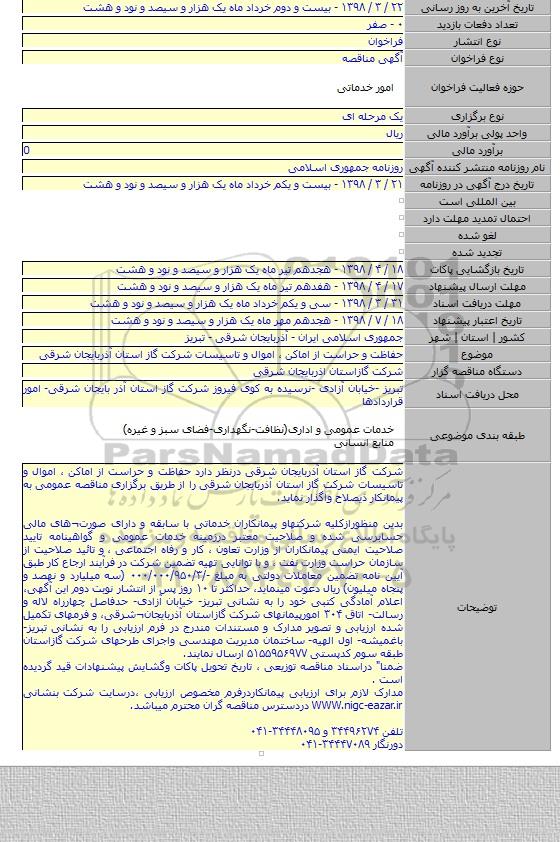 تاریخ آخرین به روز رسانی ۲۲ / ۳ / ۱۳۹۸ - بیست و دوم خرداد ماه یک هزار و سیصد و نود و هشت
تعداد دفعات بازدید ۰ - صفر
نوع انتشار فراخوان
نوع فراخوان آگهی مناقصه
حوزه فعالیت فراخوان امور خدماتی
نوع برگزاری یک مرحله ای
واحد پولی برآورد مالی ریال
برآورد مالی 0
نام روزنامه منتشر کننده آگهی روزنامه جمهوری اسلامی
تاریخ درج آگهی در روزنامه ۲۱ / ۳ / ۱۳۹۸ - بیست و یکم خرداد ماه یک هزار و سیصد و نود و هشت
بین المللی است
احتمال تمدید مهلت دارد
لغو شده
تجدید شده
تاریخ بازگشایی پاکات ۱۸ / ۴ / ۱۳۹۸ - هجدهم تیر ماه یک هزار و سیصد و نود و هشت
مهلت ارسال پیشنهاد ۱۷ / ۴ / ۱۳۹۸ - هفدهم تیر ماه یک هزار و سیصد و نود و هشت
مهلت دریافت اسناد ۳۱ / ۳ / ۱۳۹۸ - سی و یکم خرداد ماه یک هزار و سیصد و نود و هشت
تاریخ اعتبار پیشنهاد ۱۸ / ۷ / ۱۳۹۸ - هجدهم مهر ماه یک هزار و سیصد و نود و هشت
کشور | استان | شهر جمهوری اسلامی ایران - آذربایجان شرقی - تبریز
موضوع حفاظت و حراست از اماکن ، اموال و تاسیسات شرکت گاز استان آذربایجان شرقی
دستگاه مناقصه گزار شرکت گازاستان اذربایجان شرقی
محل دریافت اسناد تبریز -خیابان آزادی -نرسیده به کوی فیروز شرکت گاز استان آذر بایجان شرقی- امور
قراردادها
طبقه بندی موضوعی خدمات عمومی و اداری(نظافت-نگهداری-فضای سبز و غیره)
منابع انسانی
ParsNamadData
توضیحات
شرکت گاز استان آذربایجان شرقی درنظر دارد حفاظت و حراست از اماکن ، اموال و
تاسیسات شرکت گاز استان آذربایجان شرقی را از طریق برگزاری مناقصه عمومی به
پیمانکار ذیصلاح واگذار نماید.
بدین منظورازکلیه شرکتهای پیمانکاران خدماتی با سابقه و دارای صورت¬های مالی
حسابرسی شده و صلاحیت معتبر درزمینه خدمات عمومی و گواهینامه تایید
صلاحیت ایمنی پیمانکاران از وزارت تعاون ، کار و رفاه اجتماعی ، و تائید صلاحیت از
سازمان حراست وزارت نفت ، و با توانایی تهیه تضمین شرکت در فرآیند ارجاع کار طبق
آیین نامه تضمین معاملات دولتی به مبلغ -/۰۰۰/۰۰۰/۹۵۰/۳ (سه میلیارد و نهصد و
پنجاه میلیون) ریال دعوت مینماید، حداکثر تا ۱۰ روز پس از انتشار نوبت دوم این آگهی،
اعلام آمادگی کتبی خود را به نشانی تبریز- خیابان آزادی- حدفاصل چهارراه لاله و
رسالت- اتاق ۳۰۴ امورپیمانهای شرکت گازاستان آذربایجان¬شرقی، و فرمهای تکمیل
شده ارزیابی و تصویر مدارک و مستندات مندرج در فرم ارزیابی را به نشانی تبریز-
باغمیشه- اول الهیه- ساختمان مدیریت مهندسی واجرای طرحهای شرکت گازاستان
طبقه سوم کدپستی ۵۱۵۵۹۵۶۹۷۷ ارسال نمایند.
ضمنا" دراسناد مناقصه توزیعی ، تاریخ تحویل پاکات وگشایش پیشنهادات قید گردیده
است .
مدارک لازم برای ارزیابی پیمانکاردرفرم مخصوص ارزیابی ،درسایت شرکت بنشانی
WWW.nigc-eazar.ir دردسترس مناقصه گران محترم میباشد.
تلفن ۳۴۴۹۶۲۷۴ و ۳۴۴۴۸۰۹۵-۰۴۱
دورنگار ۳۴۴۴۷۰۸۹-۰۴۱